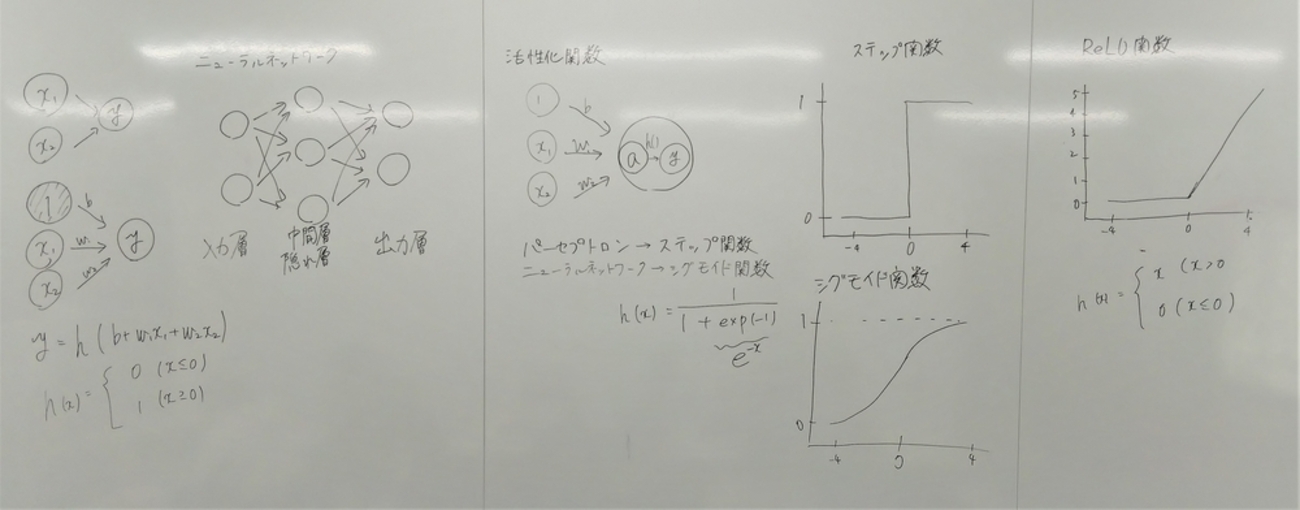 ニューラルネットワーク
x₁
y
x₂
1
b
x₁
w₁
y
x₂
w₂
入力層
中間層
隠れ層
出力層
y = h (b+w₁x₁+w₂x₂)
h(x) = { 0 (x≤0)
1 (x≥0)
活性化関数
1
b
x₁
w₁
a
h()
y
x₂
w₂
パーセプトロン → ステップ関数
ニューラルネットワーク → シグモイド関数
h(x) = 1 / 1 + exp(-1)
e⁻ˣ
ステップ関数
1
0
-4 0 4
シグモイド関数
1
0
-4 0 4
ReLU 関数
5
4
3
2
1
0
-4 0 4
h(x) = { x (x>0
0 (x≤0)